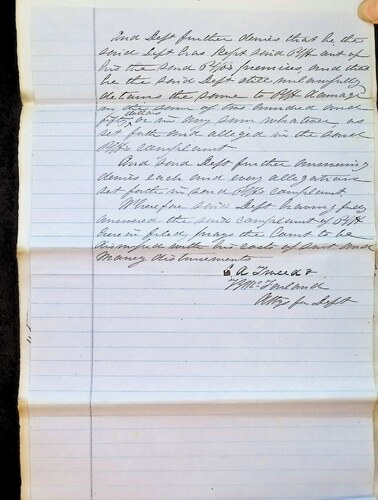 And Deft further denies that he the
said Deft has kept said Plff out of
his the said Plffs premises and that
he the said Deft still unlawfully
detains the same to Plff damage
in the sum of two hundred and
fifty dollars or in any sum whatever as
set forth and alleged in the said
Plffs complaint
And said Deft further answering
denies each and every allegation
set forth in said Plffs complaint
Wherefore said Deft having fully
answered the said complaint of Plff
herein filed, prays the Court to be
dismissed with his costs of suit and
Money disbursements
A Tweed &
McFarland
Attys for Deft